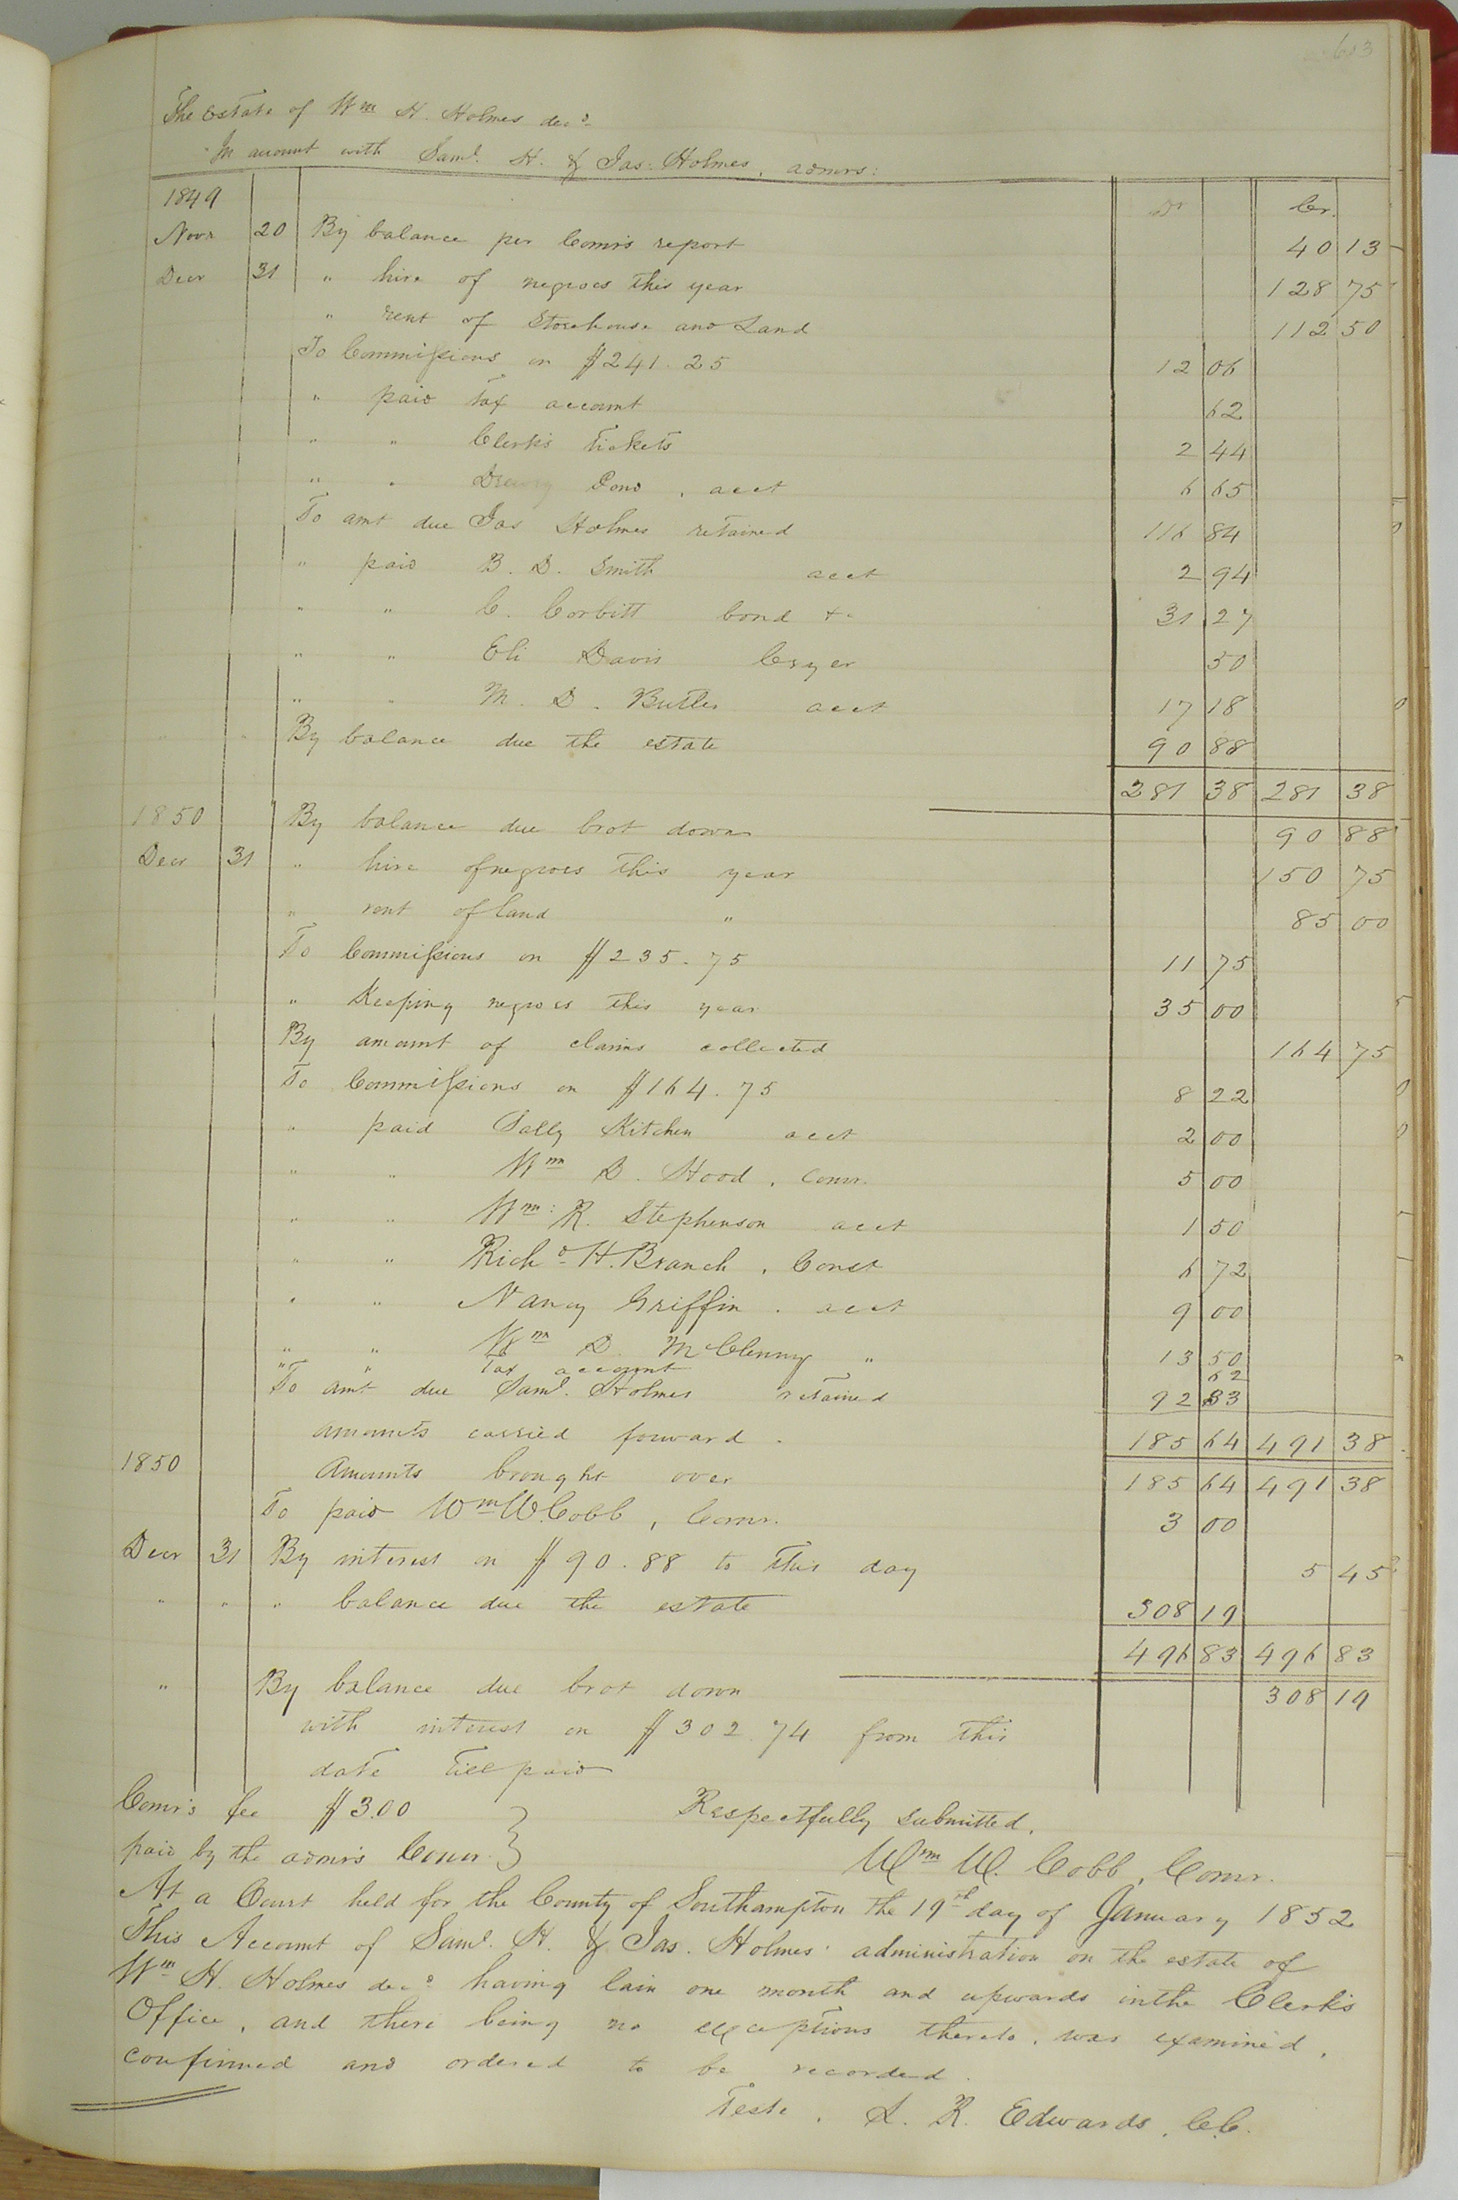 603
The Estate of Wm H. Holmes decd.
In account with Saml. H. & Jas. Holmes, admrs:
1849 Dr Cr.
Novr 20 By balance per Comr's report 40 13
Decr 31 " hire of negroes this year 128 75
" rent of Storehouse and Land 112 50
To Commissions on $241.25 12 06
" paid Tax account 62
" " Clerk's Tickets 2 44
" " Drewry Pond, acct 6 65
To amt due Jas Holmes retained 116 84
" paid B. D. Smith acct 2 94
" " C. Corbitt bond &c 31 27
" " Eli Davis Cryer 50
" " M. D. Butler acct 17 18
By balance due the estate 90 88
281 38 281 38
1850 By balance due brot down 90 88
Decr 31 " hire of negroes this year 150 75
" rent of land " 85 00
To Commissions on $235.75 11 75
" Keeping negroes this year 35 00
By amount of claims collected 164 75
To Commissions on $164.75 8 22
" paid Sally Kitchen acct 2 00
" " Wm B. Hood, comr. 5 00
" " Wm: R. Stephenson acct 1 50
" " Richd H. Branch, Const 6 72
" " Nancy Griffin. acct 9 00
" " Wm D. McClenny " 13 50
" " Tax account 62
To amt due Saml. Holmes retained 92 33
amounts carried forward. 185 64 491 38
1850 Amounts brought over 185 64 491 38
To paid Wm W. Cobb, Comr. 3 00
Decr 31 By interest on $90.88 to this day 5 45
" " " balance due the estate 308 19
496 83 496 83
" By balance due brot down 308 19
with interest on $302.74 from this
date till paid
Comr's fee $3.00 Respectfully submitted,
paid by the admr's Comr. Wm W. Cobb, Comr.
At a Court held for the County of Southampton the 19th day of January 1852
This Account of Saml. H. & Jas. Holmes' administration on the estate of
Wm H. Holmes decd having lain one month and upwards in the Clerk's
Office, and there being no exceptions thereto, was examined,
confirmed and ordered to be recorded.
Teste, L. R. Edwards, C.C.